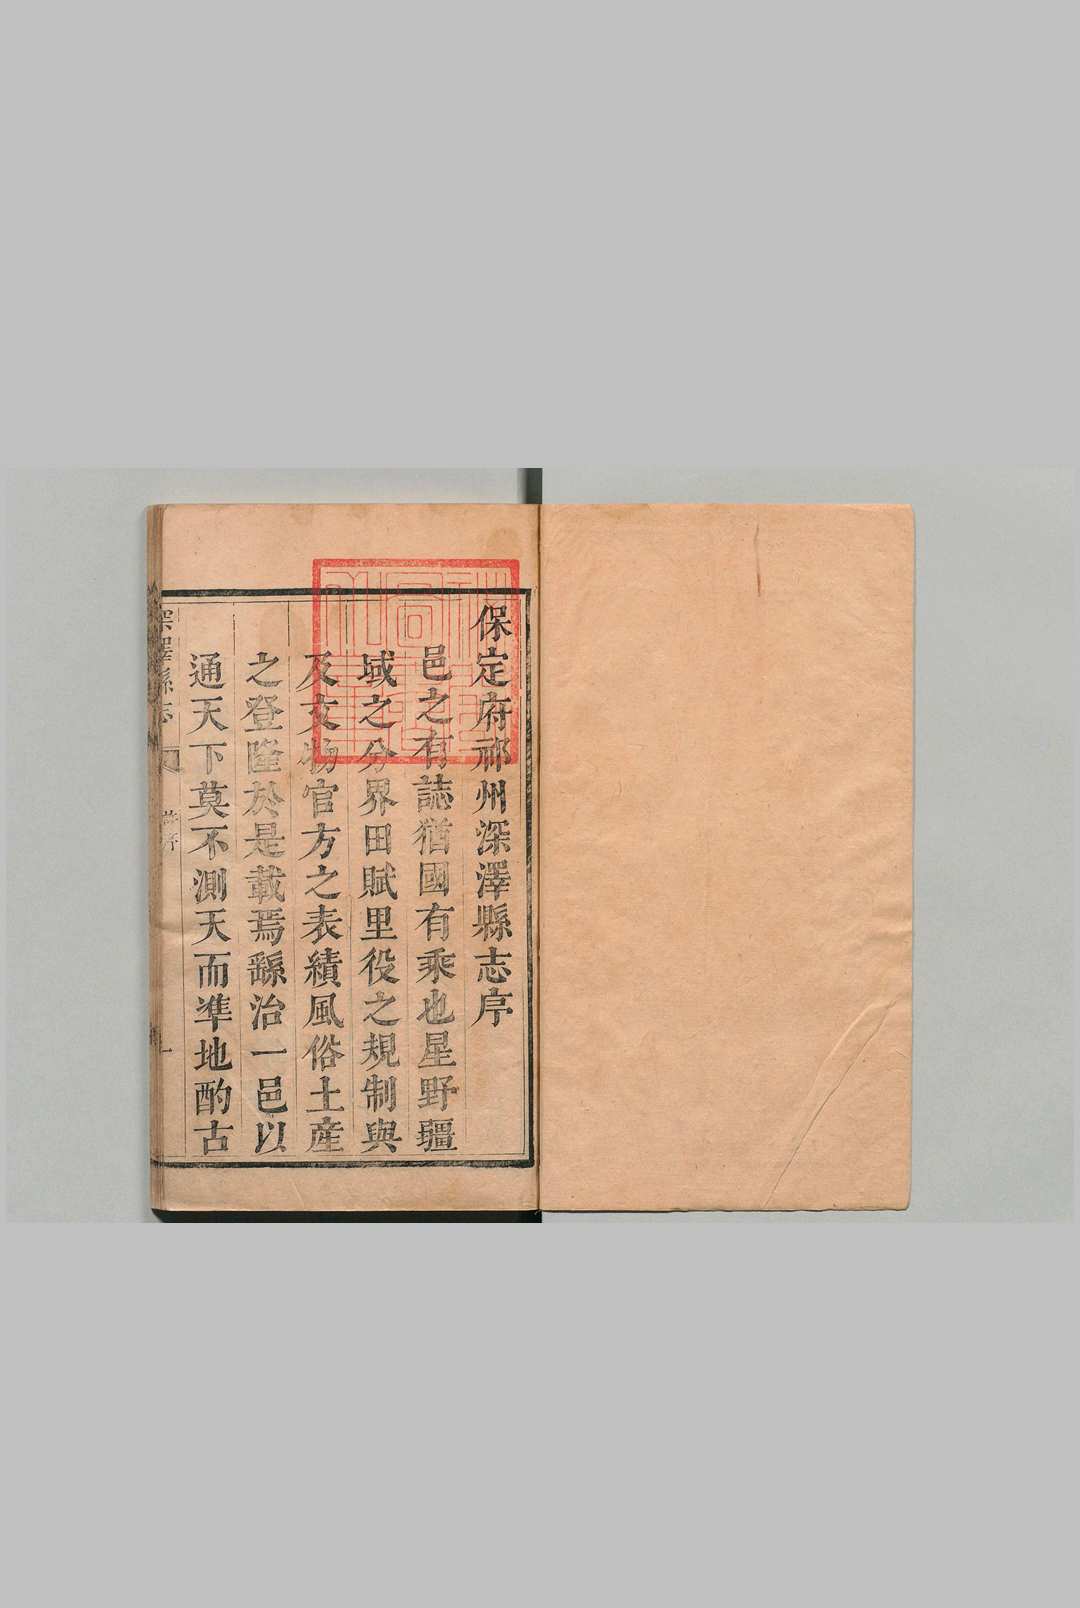 保定府祁州深澤縣志序
邑之有誌猶國有乘也星野疆
域之分界田賦里役之規制與
及文物官方之表績風俗土産
之登隆於是載焉繇治一邑以
通天下莫不測天而準地酌古
深澤縣志
序
一